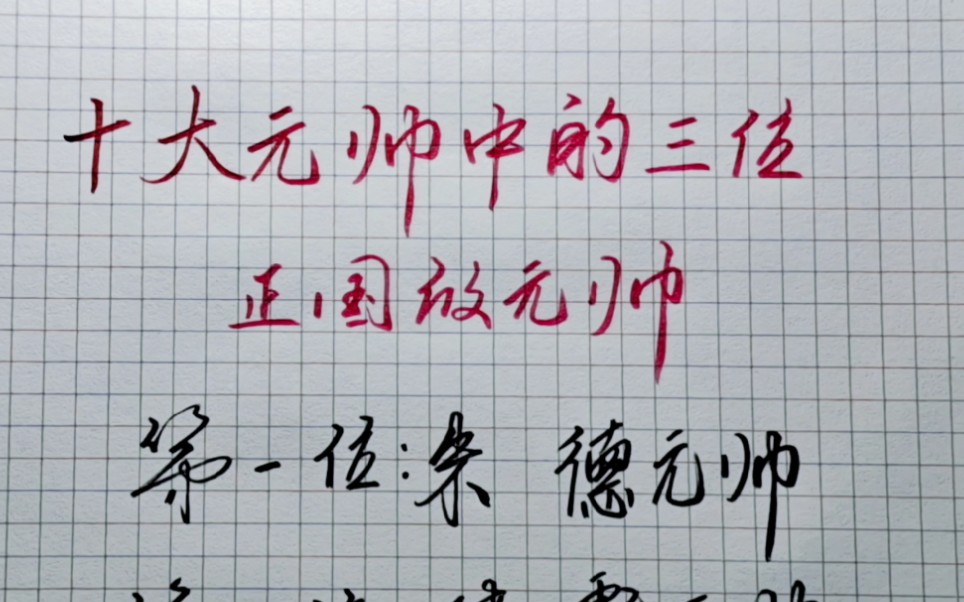 十大元帅中的三位
正国级元帅
第一位:朱 德元帅